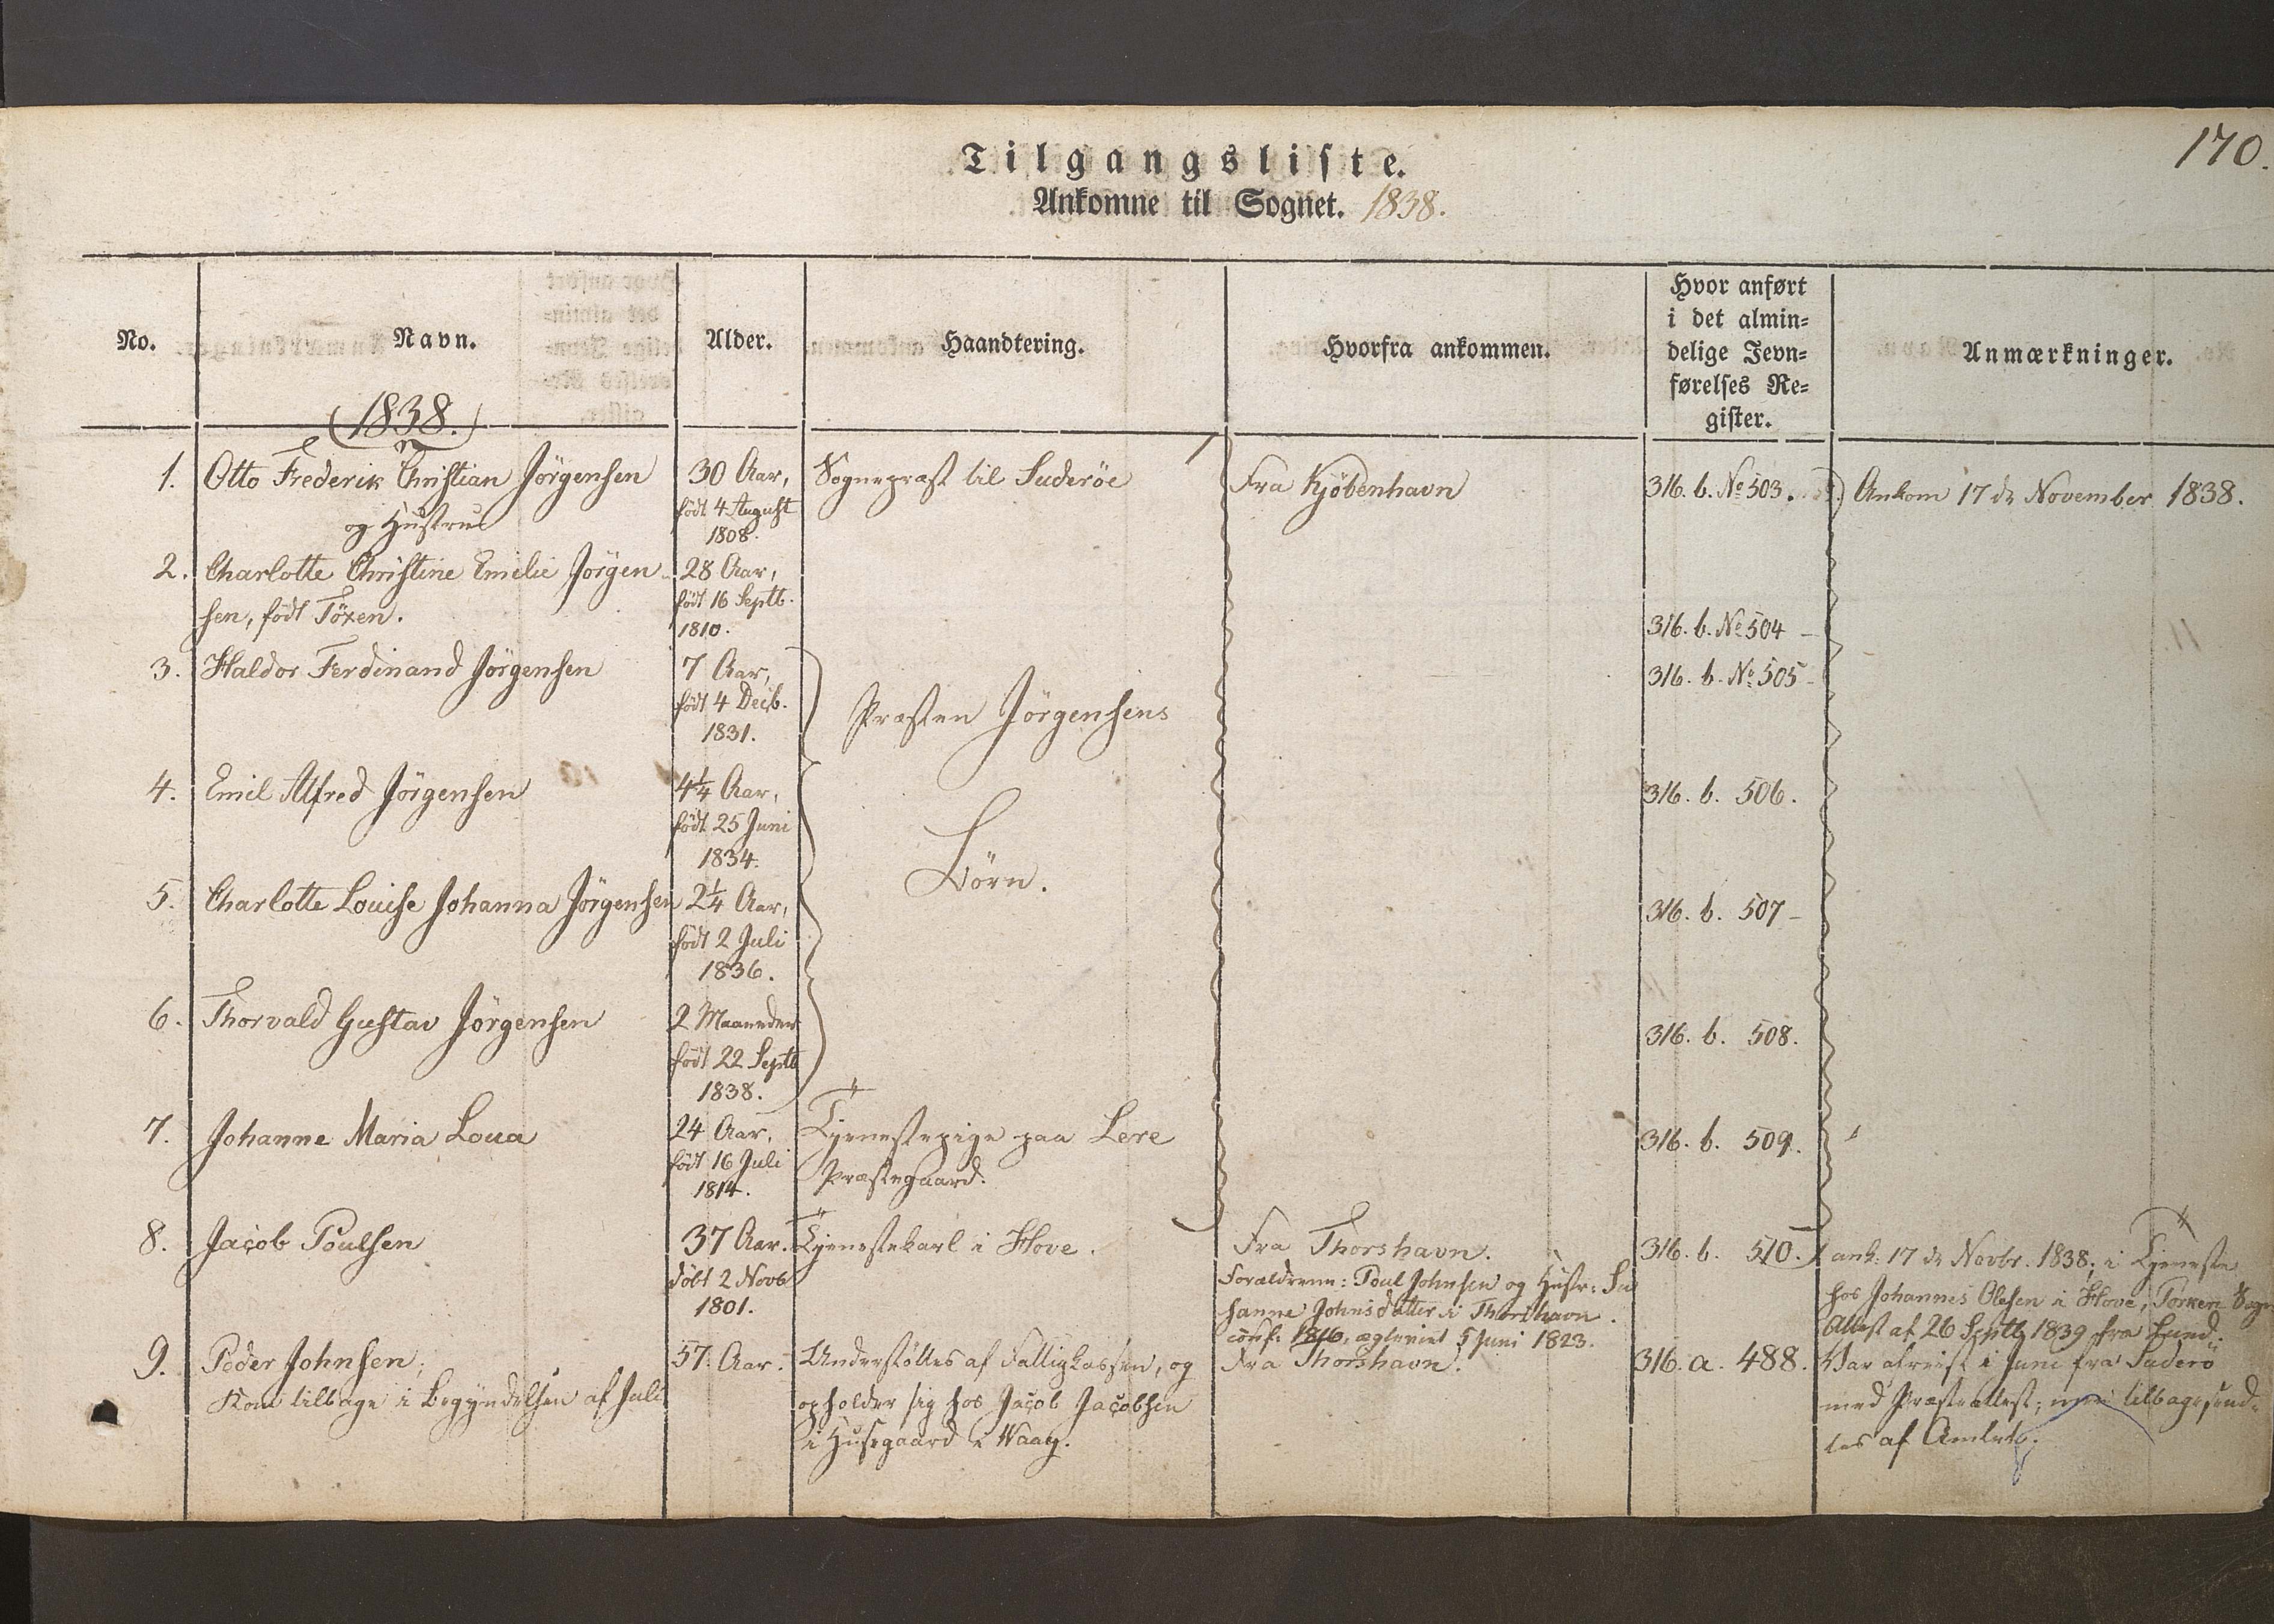 170.
Tilgangsliste.
Ankomne til Sognet. 1838.
No.
Navn.
Alder.
Haandtering.
Hvorfra ankommen.
Hvor anført
i det almin=
delige Jevn=
førelses Re=
gister.
Anmærkninger.
(1838.)
1. Otto Frederik Christian Jörgensen
og Hustrue
30 Aar,
födt 4 August
1808.
Sognepræst til Suderöe
Fra Kjöbenhavn
316. b. No 503.
Ankom 17 de November 1838.
2. Charlotte Christine Emilie Jörgen-
sen, födt Töxen.
28 Aar,
födt 16 Septb.
1810.
316. b. No 504
3. Haldor Ferdinand Jörgensen
7 Aar,
födt 4 Decb.
1831.
Præsten Jörgensens
316. b. No 505
4. Emil Alfred Jörgensen
4¼ Aar,
födt 25 Juni
1834.
Börn.
316. b. 506.
5. Charlotte Louise Johanna Jörgensen
2¼ Aar,
födt 2 Juli
1836.
316. b. 507
6. Thorvald Gustav Jörgensen
2 Maaneder
födt 22 Septb
1838.
316. b. 508.
7. Johanne Maria Loua
24 Aar,
födt 16 Juli
1814.
Tjenestepige paa Lere
Præstegaard.
316. b. 509.
8. Jacob Poulsen
37 Aar.
döbt 2 Novb
1801.
Tjenestekarl i Hove.
Fra Thorshavn.
Forældrene: Poul Johnsen og Hustr: Su
sanne Johnsdatter i Thorshavn.
conf: 1816, ægteviet 5 Juni 1823.
316. b. 510.
ank: 17 de Novbr. 1838; i Tjeneste
hos Johannes Olesen i Hove, Porkere Sogn
Attest af 26 Septb 1839 fra
9. Peder Johnsen;
Kom tilbage i Begyndelsen af Juli
57 Aar.
Understöttes af Fattigkassen, og
opholder sig hos Jacob Jacobsen
i Husegaard i Waag.
Fra Thorshavn.
316. a. 488.
Var afreist i Juni fra Suderö
med Præsteattest; men tilbagesend-
tes af Amtet.